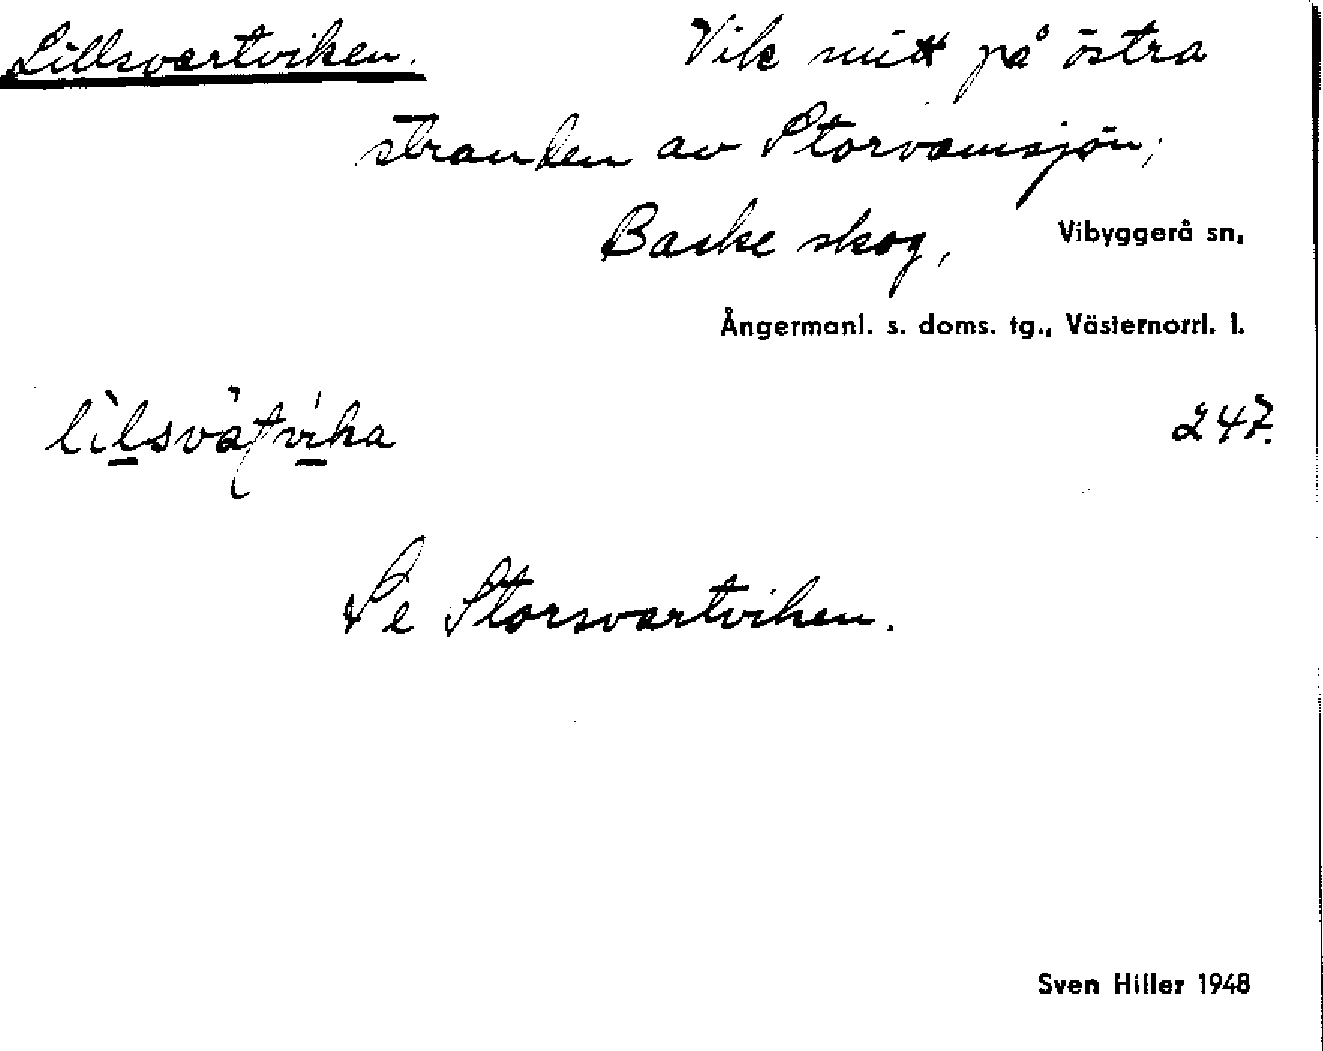 Lillsvartviken. Vik mitt på östra
stranden av Storvamsjön;
Baske skog, Vibyggerå sn,
Ångermanl. s. doms. tg., Västernorrl. l.
lìlsvàṭvíka 247.
Se Storsvartviken.
Sven Hiller 1948